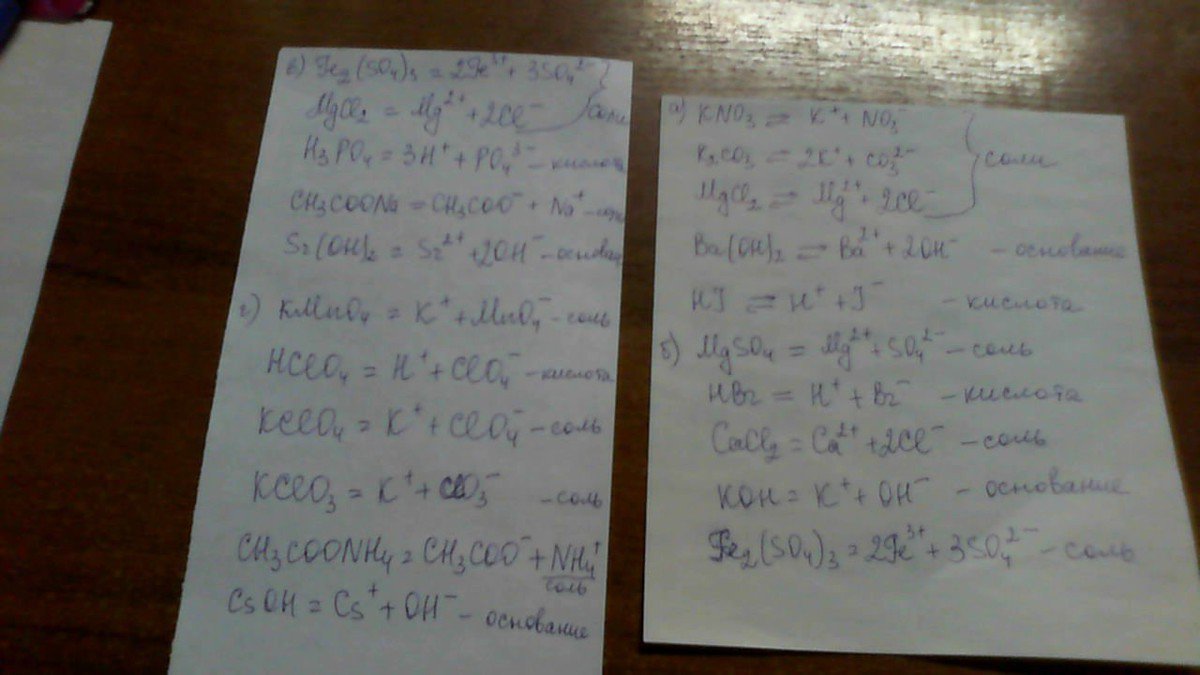 в) Fe₂(SO₄)₃ = 2Fe³⁺ + 3SO₄²⁻
MgCl₂ = Mg²⁺ + 2Cl⁻ соли
H₃PO₄ = 3H⁺ + PO₄³⁻ – кислота
CH₃COONa = CH₃COO⁻ + Na⁺ –
Sr(OH)₂ = Sr²⁺ + 2OH⁻ – основан
г) KMnO₄ = K⁺ + MnO₄⁻ – соль
HClO₄ = H⁺ + ClO₄⁻ – кислота
KClO₄ = K⁺ + ClO₄⁻ – соль
KClO₃ = K⁺ + ClO₃⁻ – соль
CH₃COONH₄ = CH₃COO⁻ + NH₄⁺
соль
CsOH = Cs⁺ + OH⁻ – основание
а) KNO₃ ⇌ K⁺ + NO₃⁻
K₂CO₃ ⇌ 2K⁺ + CO₃²⁻ соли
MgCl₂ ⇌ Mg²⁺ + 2Cl⁻
Ba(OH)₂ ⇌ Ba²⁺ + 2OH⁻ – основание
HJ ⇌ H⁺ + J⁻ – кислота
б) MgSO₄ = Mg²⁺ + SO₄²⁻ – соль
HBr = H⁺ + Br⁻ – кислота
CaCl₂ = Ca²⁺ + 2Cl⁻ – соль
KOH = K⁺ + OH⁻ – основание
Fe₂(SO₄)₃ = 2Fe³⁺ + 3SO₄²⁻ – соль